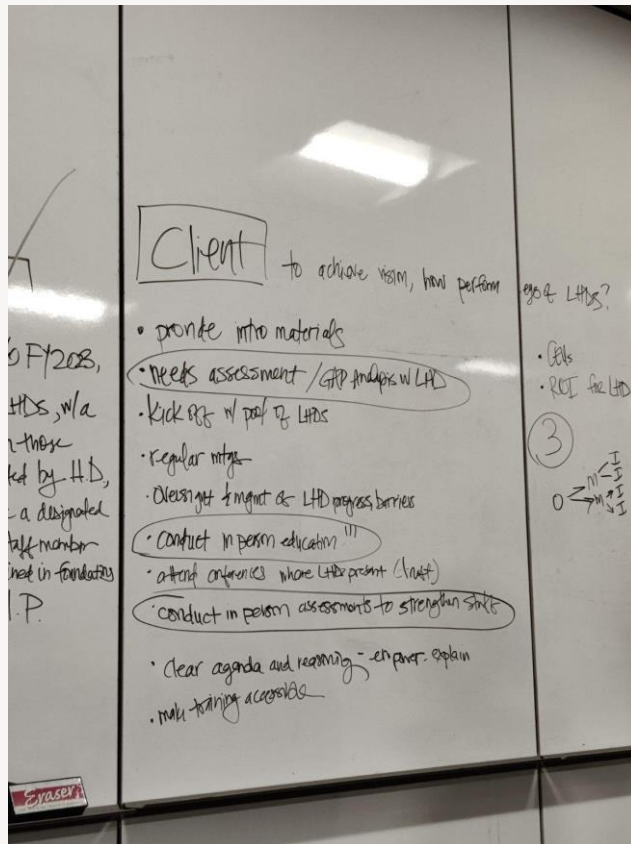 o FY2023,
LHDs, w/a
n those
ted by H.D,
a designated
staff member
ined in foundations
I.P.
Eraser
Client
to achieve vision, how perform
• provide intro materials
• needs assessment / GAP Analysis w LHD
• Kick off w/ pool of LHDs
• regular mtgs
• Oversight & mgmt of LHD progress, barriers
• conduct in person education !!!
• attend conferences where LHDs present (trust)
• conduct in person assessments to strengthen
• clear agenda and reasoning - empower - explain
• make training accessible
of LHDs?
• CEUs
• ROI for LHD
3
I
m I
O
m I
I